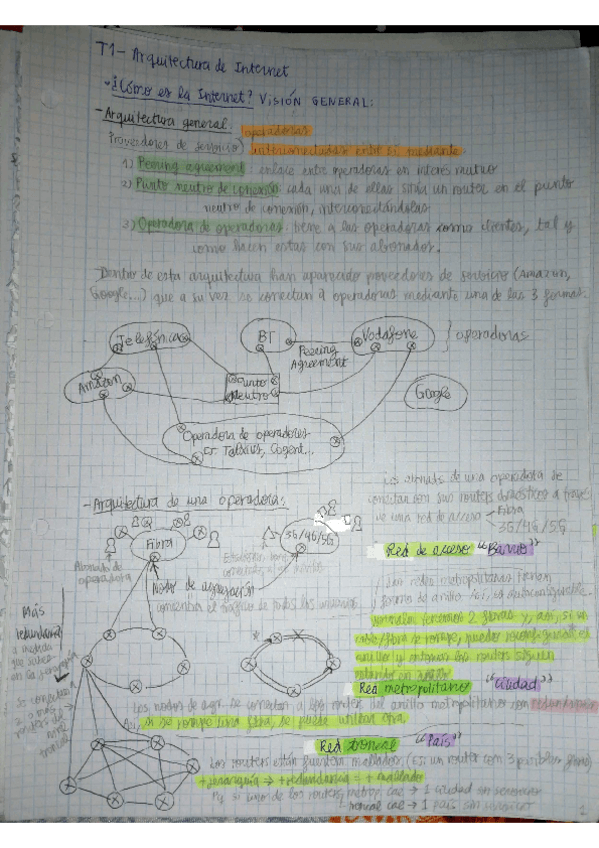 T1- Arquitectura de Internet
¿Cómo es la Internet? VISIÓN GENERAL:
- Arquitectura general: operadoras
Proveedores de servicio) interconectadas entre sí mediante
1) Peering agreement: enlace entre operadoras en interés mutuo
2) Punto neutro de conexión: cada una de ellas sitúa un router en el punto
neutro de conexión, interconectándolas
3) Operadora de operadoras: tiene a las operadoras como clientes, tal y
como hacen estas con sus abonados.
Dentro de esta arquitectura han aparecido proveedores de servicio (Amazon,
Google...) que a su vez se conectan a operadoras mediante una de las 3 formas.
Telefónica
BT
Vodafone
operadoras
Peering
Agreement
Amazon
Punto
Neutro
Google
Operadora de operadores
Cogent...
- Arquitectura de una operadora:
Los de una operadora se
conectan con sus routers domésticos a través
de una red de acceso
Fibra
3G/4G/5G
Fibra
3G/4G/5G
Red de acceso "Barrio"
Abonado de
operadora
Nodos de agregación
concentra el tráfico de todos los usuarios
Más
redundancia
a medida
que subes
en la jerarquía
Las redes metropolitanas tienen
forma de anillo
tenemos 2 fibras y, así, si un
cable/fibra se rompe, puedes reconfigurar el
anillo y entonces los routers siguen
Red metropolitana "Ciudad"
Los nodos de agr. se conectan a los routers del anillo metropolitano con redundancia
Así, si se rompe una fibra, se puede utilizar otra
Red troncal "País"
Los routers están fuertem. mallados (Ej: un router con 3 posibles fibras)
+ jerarquía ⇒ + redundancia = + mallado
si uno de los routers metrop. cae → 1 ciudad sin servicio
troncal cae → 1 país sin servicio
1